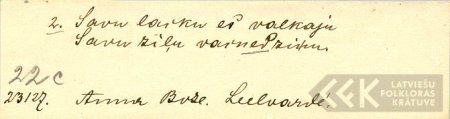 2. Savu lasku es valkaju
Savu zīļu vainedziņu.
22c
23127. Anna Bože. Lielvardē.
LATVIEŠU
FOLKLORAS
KRĀTUVE